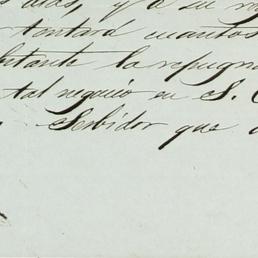 y a su
tentará cuantos
bstante la repugn
tal negocio en S.
Serbidor que